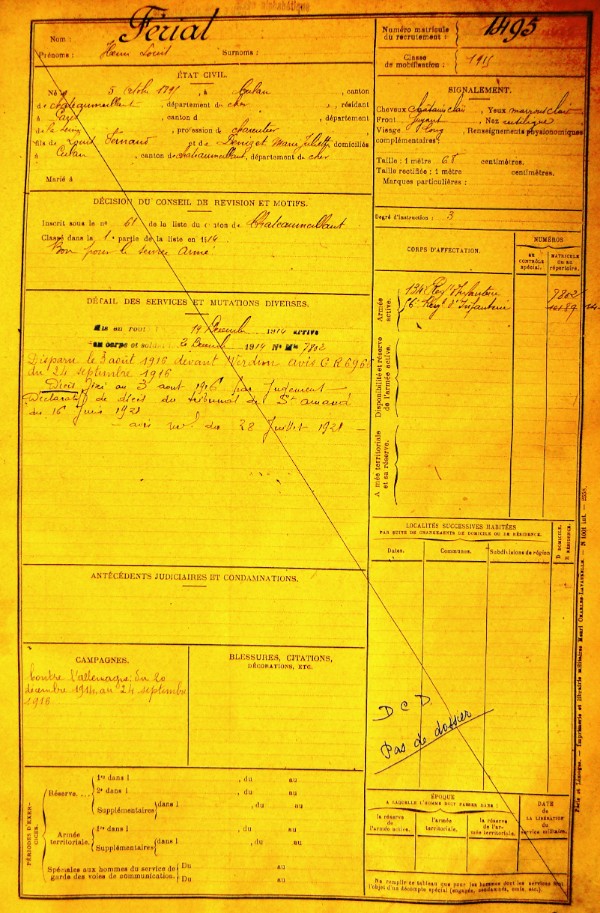 Nom : Férial
Prénoms : Henri Louis Surnoms :
Numéro matricule
du recrutement : 1495
Classe
de mobilisation : 1915
ÉTAT CIVIL.
Né le 5 , à Culan , canton
de Chateaumeillant, département du cher, résidant
à , canton d département
, profession de charretier
fils de Louis Fernand et de domiciliés
à Culan , canton de chateaumeillant, département du cher
Marié à
SIGNALEMENT.
Cheveux chatain clair , Yeux
Front fuyant , Nez rectiligne
Visage long , Renseignements physionomiques
complémentaires :
Taille : 1 mètre 68 centimètres.
Taille rectifiée : 1 mètre centimètres.
Marques particulières :
DÉCISION DU CONSEIL DE RÉVISION ET MOTIFS.
Inscrit sous le n° 61 de la liste du canton de Chateaumeillant
Classé dans la 1e partie de la liste en 1914
Bon pour le service armé
Degré d'instruction : 3
CORPS D'AFFECTATION.
NUMÉROS
AU
CONTRÔLE
spécial.
MATRICULE
OU AU
répertoire.
Armée
active.
134 Regt Infanterie 7802
Regt d'Infanterie
Disponibilité et réserve
de l'armée active.
Armée territoriale
et sa réserve.
DÉTAIL DES SERVICES ET MUTATIONS DIVERSES.
Mis en route 19 Décembre 1914 arrivé
au corps et soldat Décembre 1914 N° Mle 7802
Disparu le 3 août 1916 devant Verdun avis C.R.
du 24 septembre 1916
Décès fixé au 3 aout 1916 par jugement
Déclaratif de décès du tribunal de St amand
du 16 Juin 1921
avis du 28 Juillet 1921
LOCALITÉS SUCCESSIVES HABITÉES
PAR SUITE DE CHANGEMENTS DE DOMICILE OU DE RÉSIDENCE.
Dates.
Communes.
Subdivisions de région
D DOMICILE.
R RÉSIDENCE.
ANTÉCÉDENTS JUDICIAIRES ET CONDAMNATIONS.
CAMPAGNES.
Contre l'allemagne : du 20
décembre 1914 au 24 septembre
1916
BLESSURES, CITATIONS,
DÉCORATIONS, ETC.
D C D
Pas de dossier
PÉRIODES D'EXERCICES.
Réserve.
1re dans l , du au
2e dans l , du au
Supplémentaires dans l , du au
Armée
territoriale.
1re dans l , du au
Supplémentaires dans l , du au
Spéciales aux hommes du service de
garde des voies de communication.
Du au
Du au
ÉPOQUE
A LAQUELLE L'HOMME DOIT PASSER DANS :
la réserve
de
l'armée active.
l'armée
territoriale.
la réserve
de l'armée territoriale.
DATE
de
LA LIBÉRATION
du
service militaire.
Paris et Limoges. — Imprimerie et librairie militaires Henri CHARLES-LAVAUZELLE.